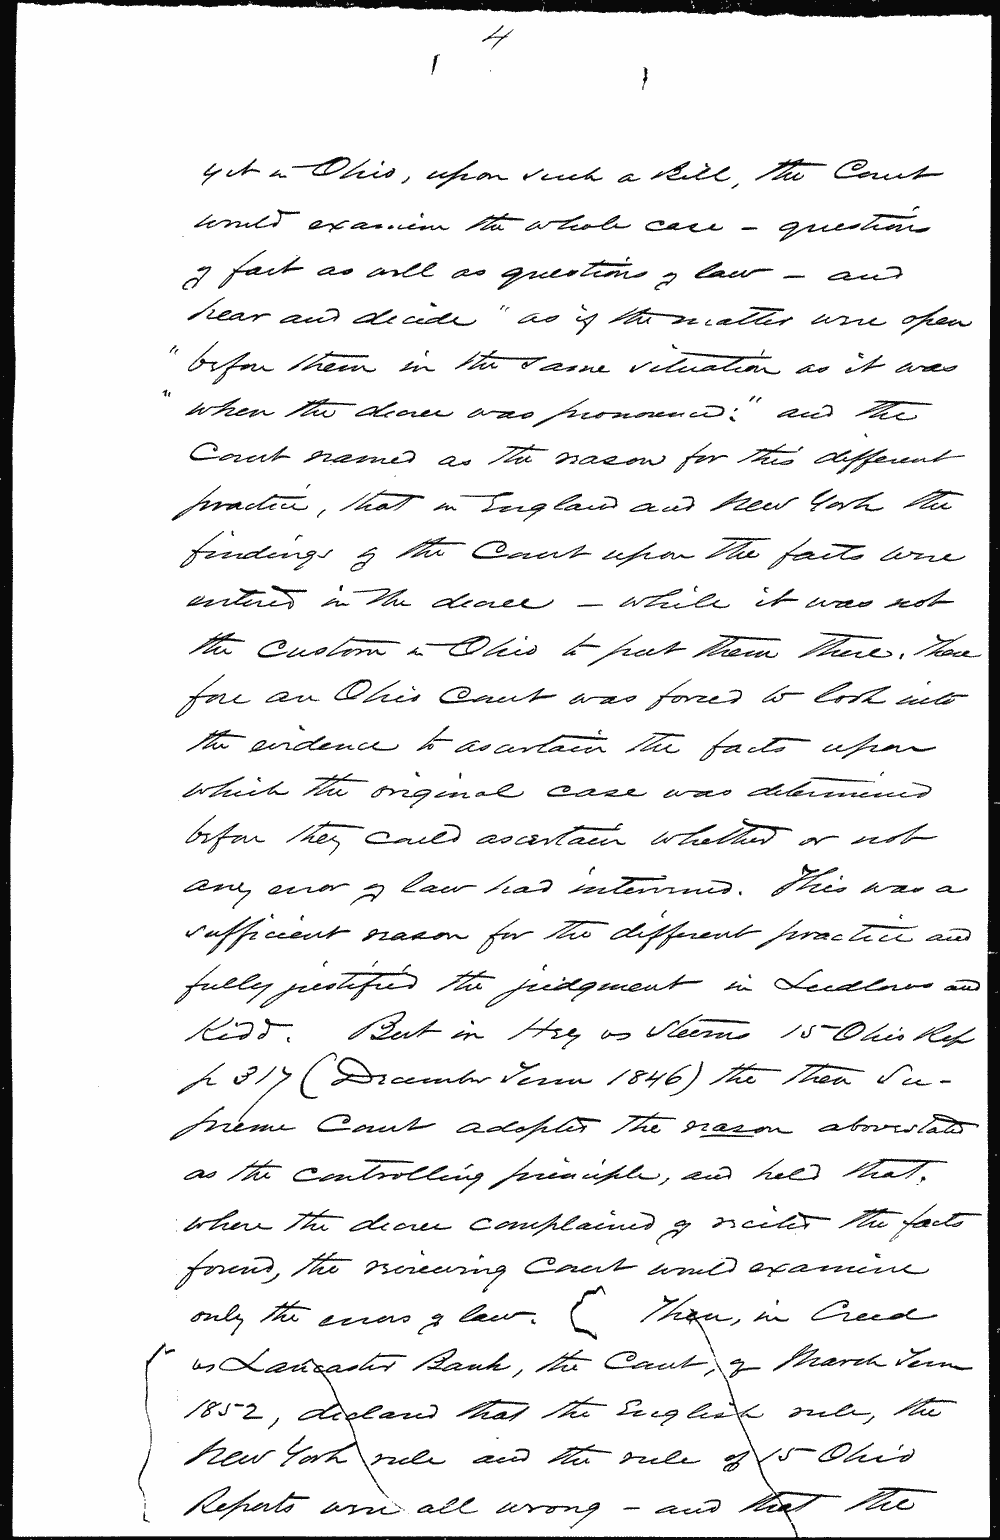 4
yet in Ohio, upon such a Bill, the Court
would examine the whole case - questions
of fact as well as questions of law - and
hear and decide "as if the matter were open
"before them in the same situation as it was
"when the decree was pronounced;" and the
Court named as the reason for this different
practice, that in England and New York the
findings of the Court upon the facts were
entered in the decree - while it was not
the custom in Ohio to put them there. There
fore an Ohio Court was forced to look into
the evidence to ascertain the facts upon
which the original case was determined
before they could ascertain whether or not
any error of law had intervened. This was a
sufficient reason for the different practice and
fully justified the judgment in Ludlows and
Kidd. But in Hey vs Sleems 15 Ohio Rep
p 317 (December Term 1846) the then Su-
preme Court adopted the reason above stated
as the controlling principle, and held that,
where the decree complained of recited the facts
found, the reviewing Court would examine
only the errors of law. { Then, in Creed
vs Lancaster Bank, the Court, of March Term
1852, declared that the English rule, the
New York rule and the rule of 15 Ohio
Reports were all wrong - and that the